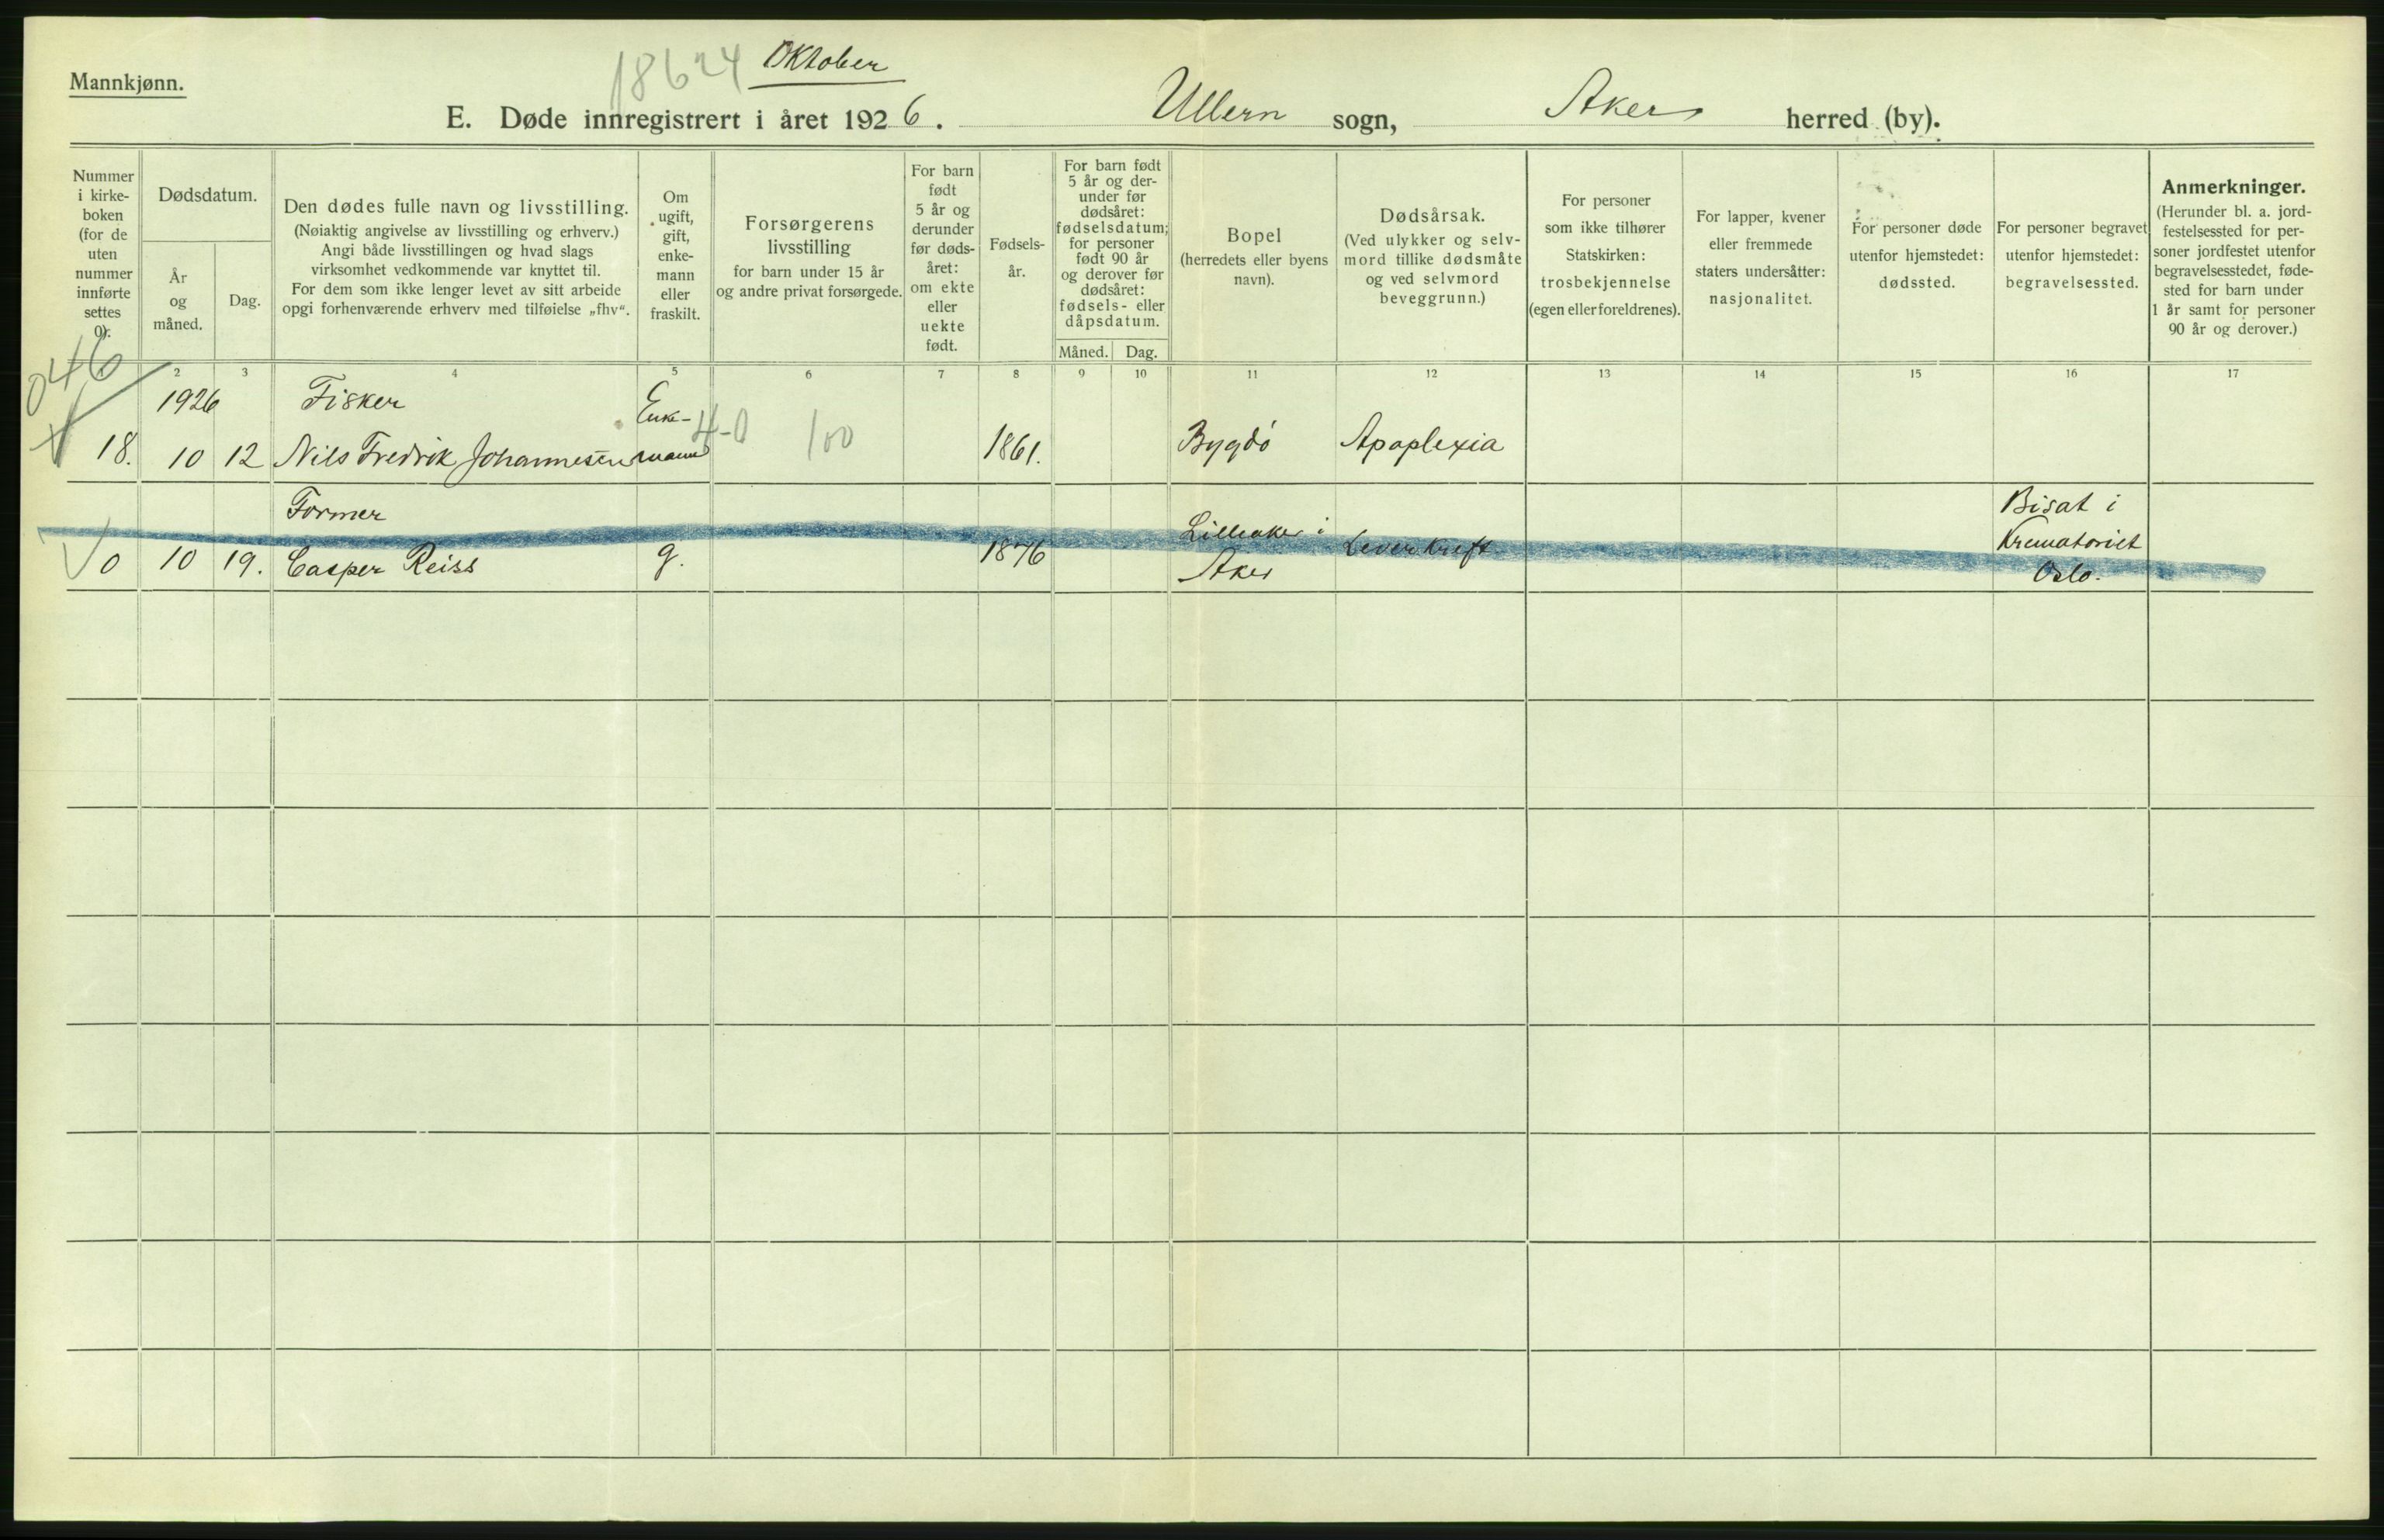 Mannkjønn.
18624
Oktober
E. Døde innregistrert i året 1926. Ullern sogn, Aker herred (by).
Nummer
i kirke-
boken
(for de
uten
nummer
innførte
settes
0).
Dødsdatum.
År
og
måned.
Dag.
Den dødes fulle navn og livsstilling.
(Nøiaktig angivelse av livsstilling og erhverv.)
Angi både livsstillingen og hvad slags
virksomhet vedkommende var knyttet til.
For dem som ikke lenger levet av sitt arbeide
opgi forhenværende erhverv med tilføielse „fhv“.
Om
ugift,
gift,
enke-
mann
eller
fraskilt.
Forsørgerens
livsstilling
for barn under 15 år
og andre privat forsørgede.
For barn
født
5 år og
derunder
før døds-
året:
om ekte
eller
uekte
født.
Fødsels-
år.
For barn født
5 år og der-
under før
dødsåret:
fødselsdatum;
for personer
født 90 år
og derover før
dødsåret:
fødsels- eller
dåpsdatum.
Måned. Dag.
Bopel
(herredets eller byens
navn).
Dødsårsak.
(Ved ulykker og selv-
mord tillike dødsmåte
og ved selvmord
beveggrunn.)
For personer
som ikke tilhører
Statskirken:
trosbekjennelse
(egen eller foreldrenes).
For lapper, kvener
eller fremmede
staters undersåtter:
nasjonalitet.
For personer døde
utenfor hjemstedet:
dødssted.
For personer begravet
utenfor hjemstedet:
begravelsessted.
Anmerkninger.
(Herunder bl. a. jord-
festelsessted for per-
soner jordfestet utenfor
begravelsesstedet, føde-
sted for barn under
1 år samt for personer
90 år og derover.)
046
1 2 3 4 5 6 7 8 9 10 11 12 13 14 15 16 17
1926 Fisker Enke-
18. 10 12 Nils Fredrik Johannesen mann 4-0 100 1861. Bygdö Apoplexia
Former Lilleaker i Bisat i
Krematoriet
0 10 19. Casper Reiss g. 1876 Aker Leverkreft Oslo.